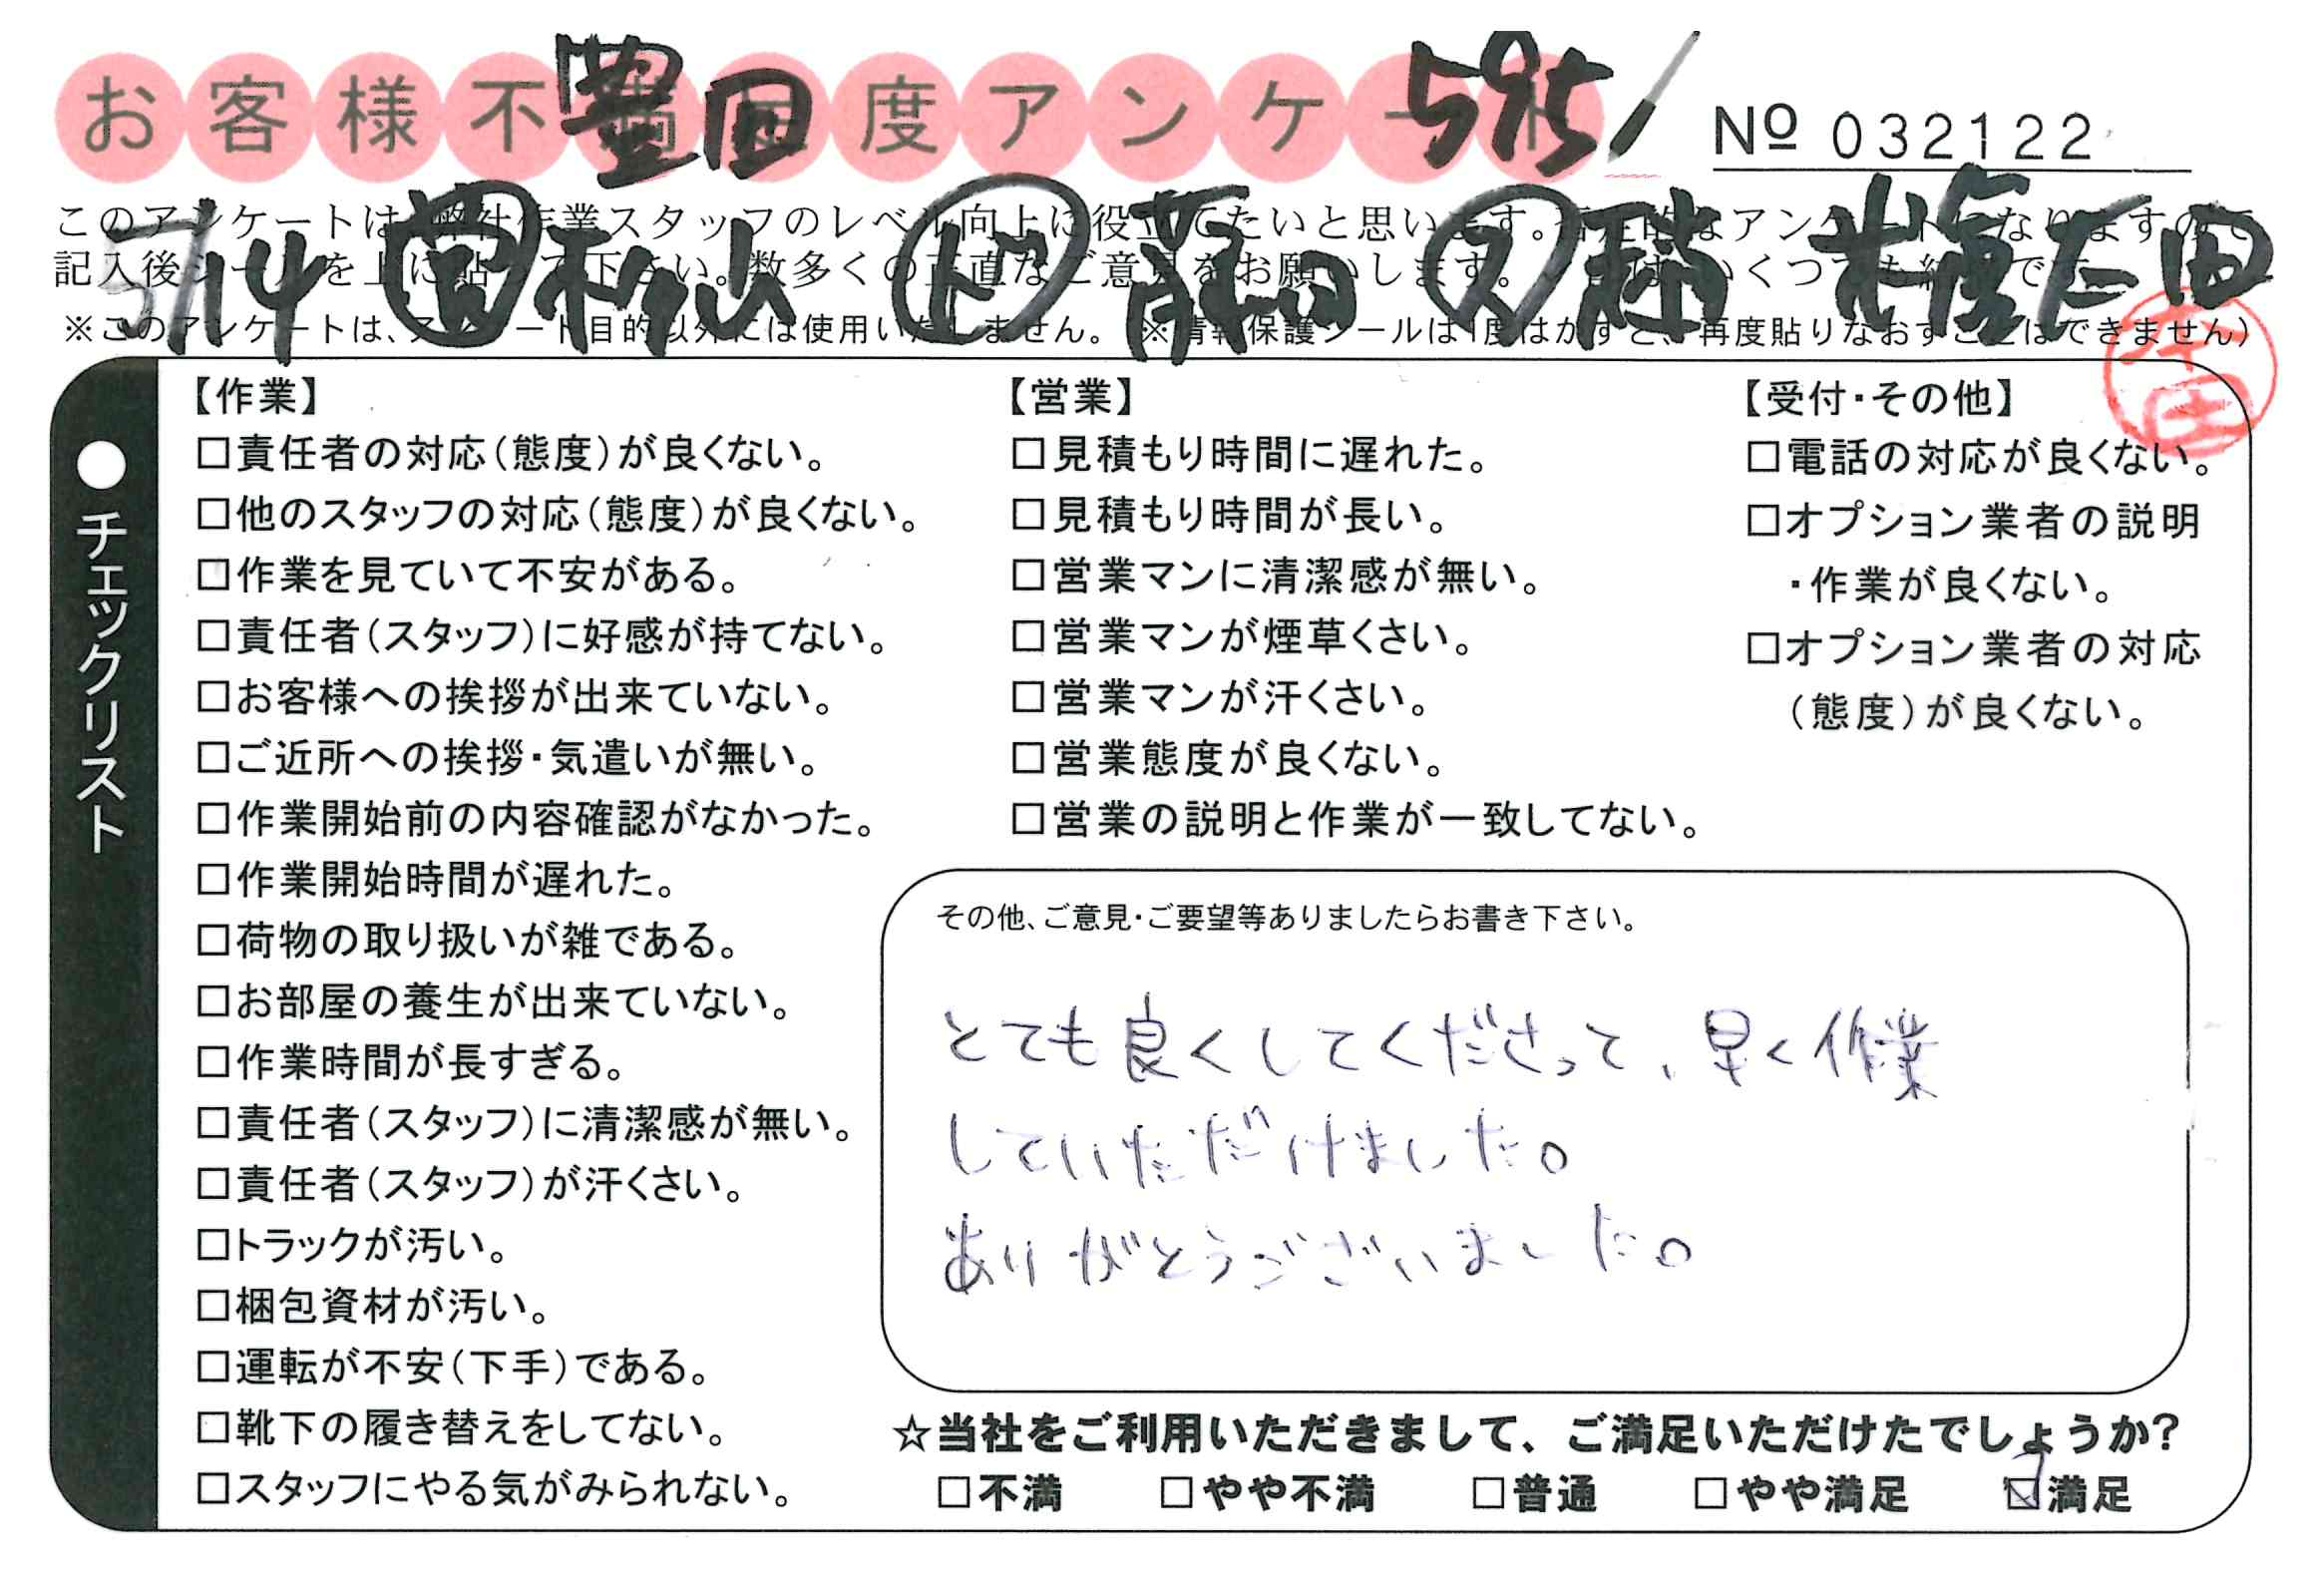 お客様不満足度アンケート
豊田 595/
№ 032122
このアンケートは、弊社作業スタッフのレベル向上に役立てたいと思います。否定的なアンケートになりますので
記入後シールを上に貼って下さい。数多くの正直なご意見をお願いします。いくつでも結構です
5/14 杉山 ド 藤田 ス 田
※このアンケートは、アンケート目的以外には使用いたしません。 ※情報保護シールは1度はがすと、再度貼りなおすことはできません)
本田
●チェックリスト
【作業】
□責任者の対応(態度)が良くない。
□他のスタッフの対応(態度)が良くない。
□作業を見ていて不安がある。
□責任者(スタッフ)に好感が持てない。
□お客様への挨拶が出来ていない。
□ご近所への挨拶・気遣いが無い。
□作業開始前の内容確認がなかった。
□作業開始時間が遅れた。
□荷物の取り扱いが雑である。
□お部屋の養生が出来ていない。
□作業時間が長すぎる。
□責任者(スタッフ)に清潔感が無い。
□責任者(スタッフ)が汗くさい。
□トラックが汚い。
□梱包資材が汚い。
□運転が不安(下手)である。
□靴下の履き替えをしてない。
□スタッフにやる気がみられない。
【営業】
□見積もり時間に遅れた。
□見積もり時間が長い。
□営業マンに清潔感が無い。
□営業マンが煙草くさい。
□営業マンが汗くさい。
□営業態度が良くない。
□営業の説明と作業が一致してない。
【受付・その他】
□電話の対応が良くない。
□オプション業者の説明
・作業が良くない。
□オプション業者の対応
(態度)が良くない。
その他、ご意見・ご要望等ありましたらお書き下さい。
とても良くしてくださって、早く作業
していただけました。
ありがとうございました。
☆当社をご利用いただきまして、ご満足いただけたでしょうか?
□不満 □やや不満 □普通 □やや満足 ☑満足